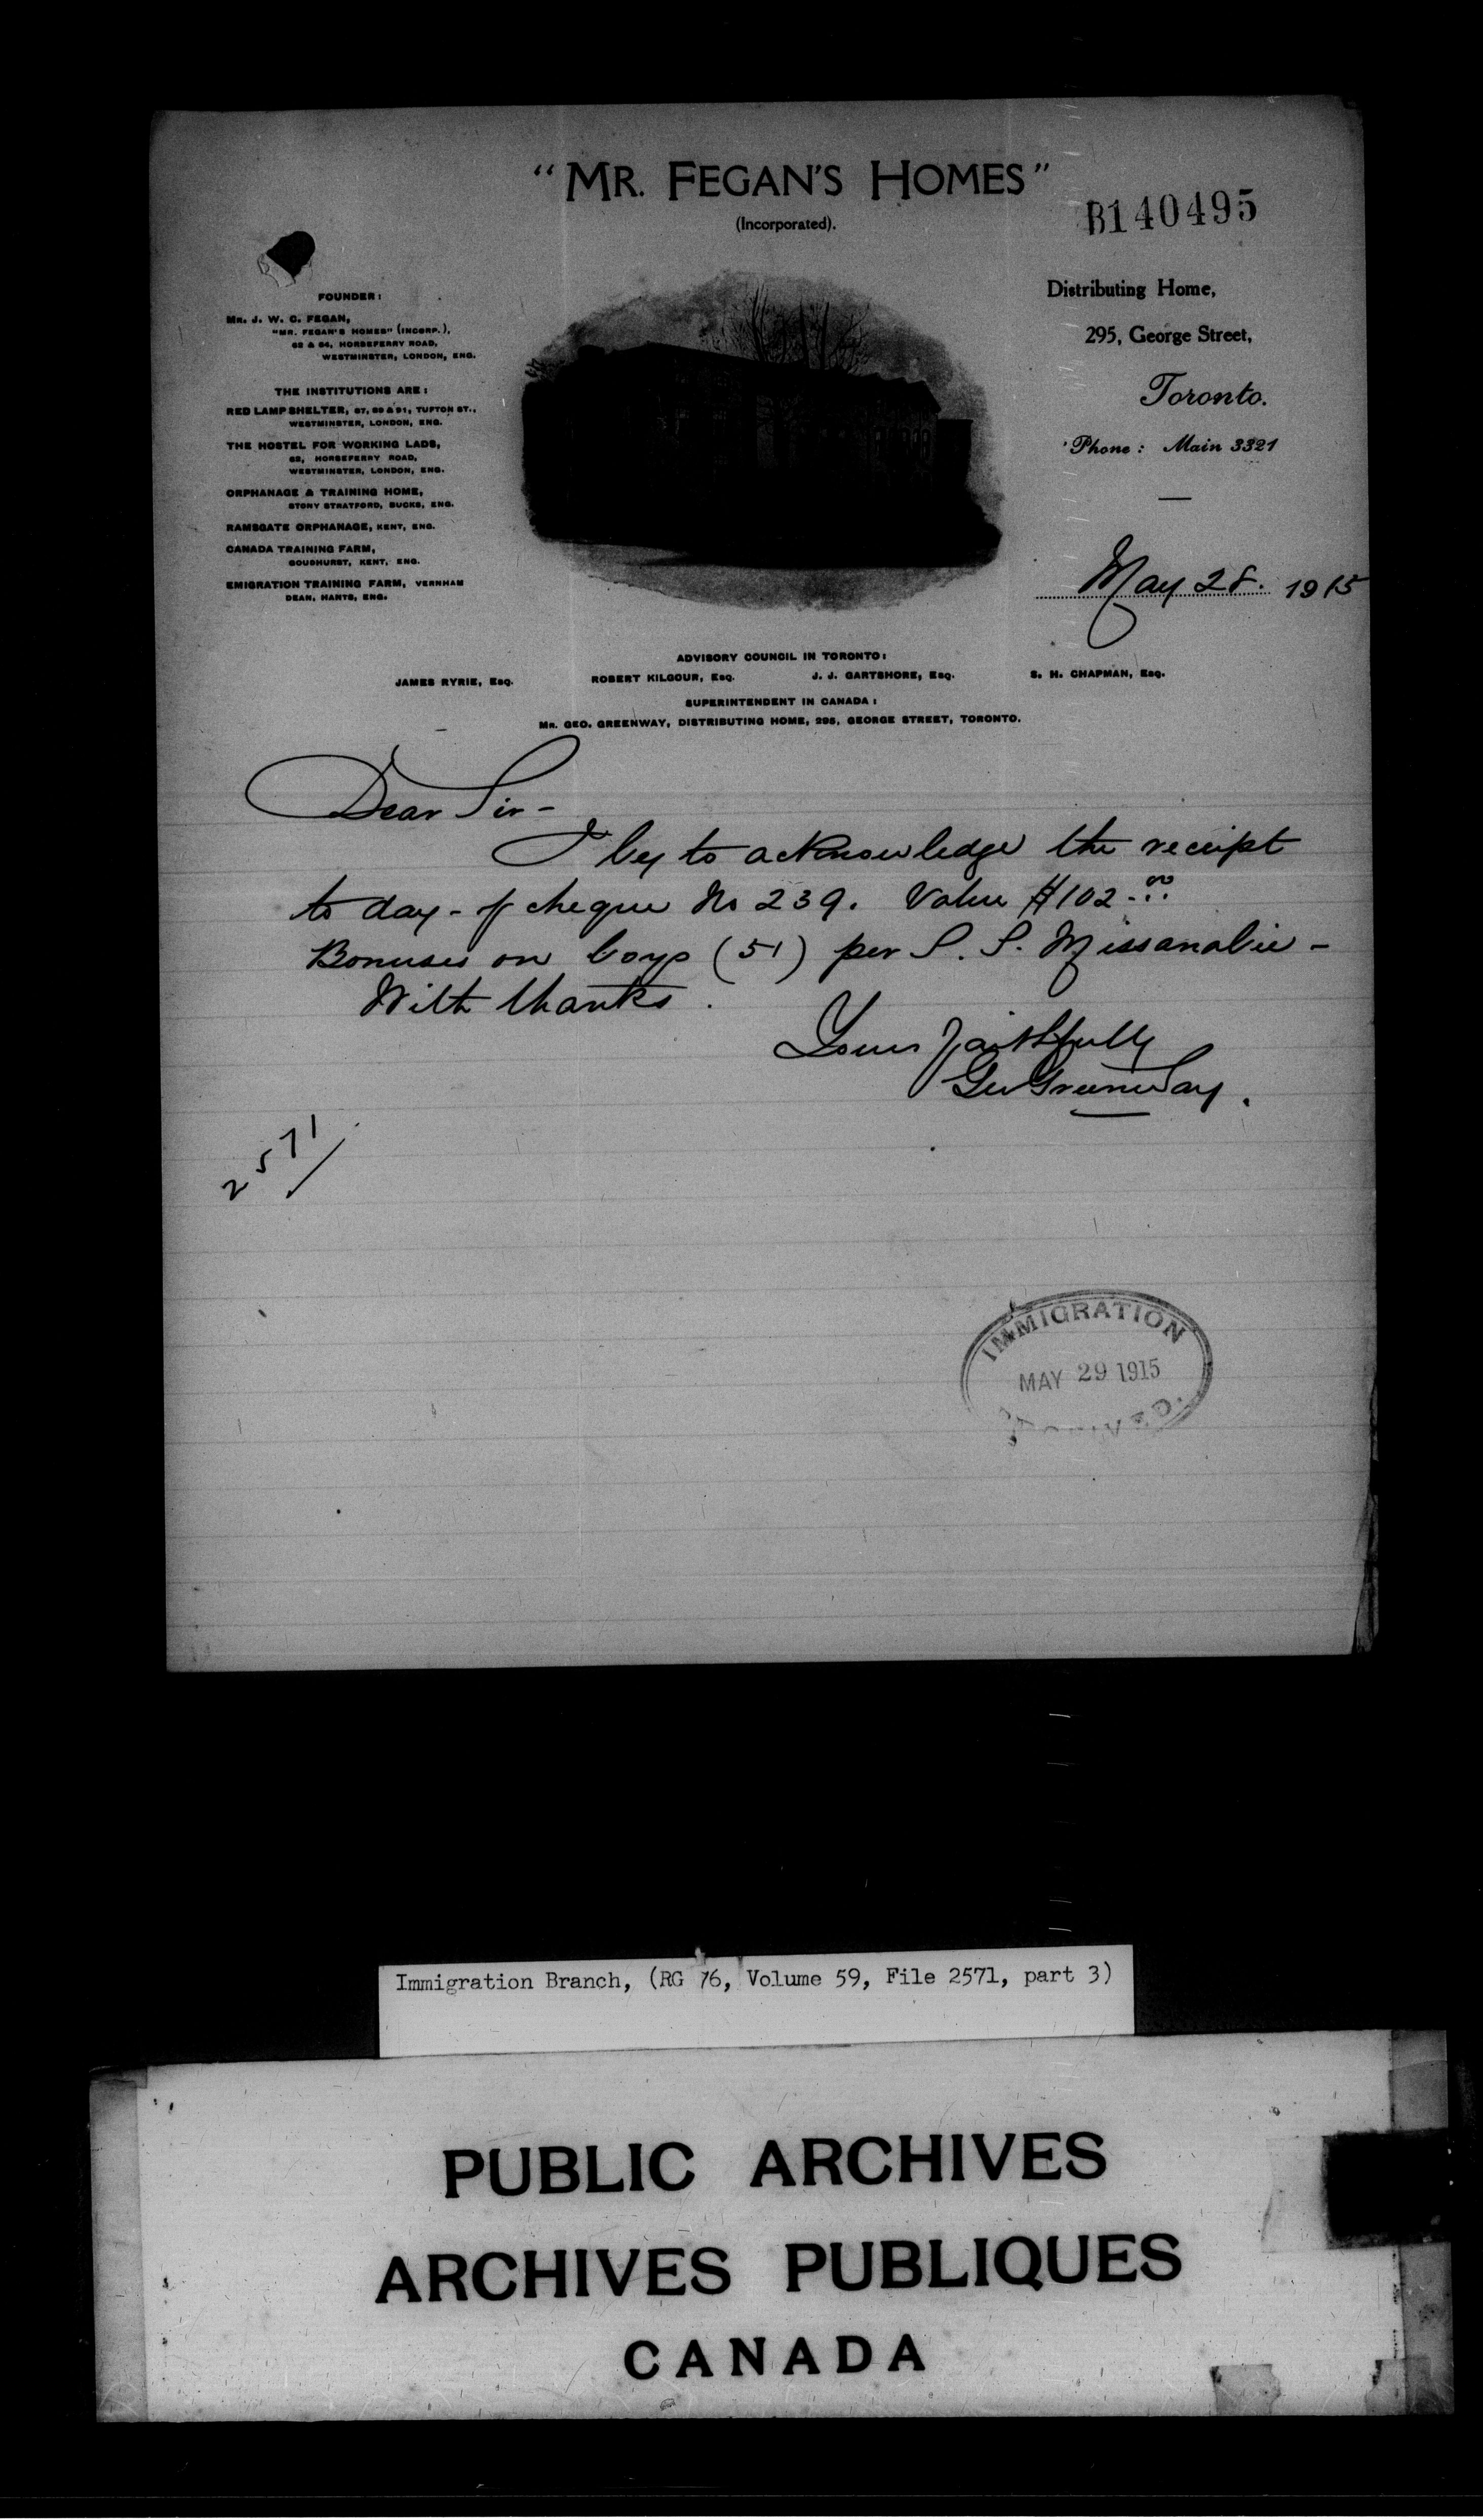 "MR. FEGAN'S HOMES"
(Incorporated).
B140495
FOUNDER:
MR. J. W. C. FEGAN,
"MR. FEGAN'S HOMES" (INCORP.),
62 & 64, HORSEFERRY ROAD,
WESTMINSTER, LONDON, ENG.
THE INSTITUTIONS ARE:
RED LAMP SHELTER, 87, 89 & 91, TUFTON ST.,
WESTMINSTER, LONDON, ENG.
THE HOSTEL FOR WORKING LADS,
62, HORSEFERRY ROAD,
WESTMINSTER, LONDON, ENG.
ORPHANAGE & TRAINING HOME,
STONY STRATFORD, BUCKS, ENG.
RAMSGATE ORPHANAGE, KENT, ENG.
CANADA TRAINING FARM,
GOUDHURST, KENT, ENG.
EMIGRATION TRAINING FARM, VERNHAM
DEAN, HANTS, ENG.
Distributing Home,
295, George Street,
Toronto.
Phone: Main 3321
May 28. 1915
ADVISORY COUNCIL IN TORONTO:
JAMES RYRIE, Esq. ROBERT KILGOUR, Esq. J. J. GARTSHORE, Esq. S. H. CHAPMAN, Esq.
SUPERINTENDENT IN CANADA:
MR. GEO. GREENWAY, DISTRIBUTING HOME, 295, GEORGE STREET, TORONTO.
Dear Sir -
I beg to acknowledge the receipt
to day - of cheque No 239. Value $102.00
Bonuses on boys (51) per S. S. Missanabie -
With thanks.
Yours faithfully
Geo Greenway.
2571
IMMIGRATION
MAY 29 1915
RECEIVED.
Immigration Branch, (RG 76, Volume 59, File 2571, part 3)
PUBLIC ARCHIVES
ARCHIVES PUBLIQUES
CANADA